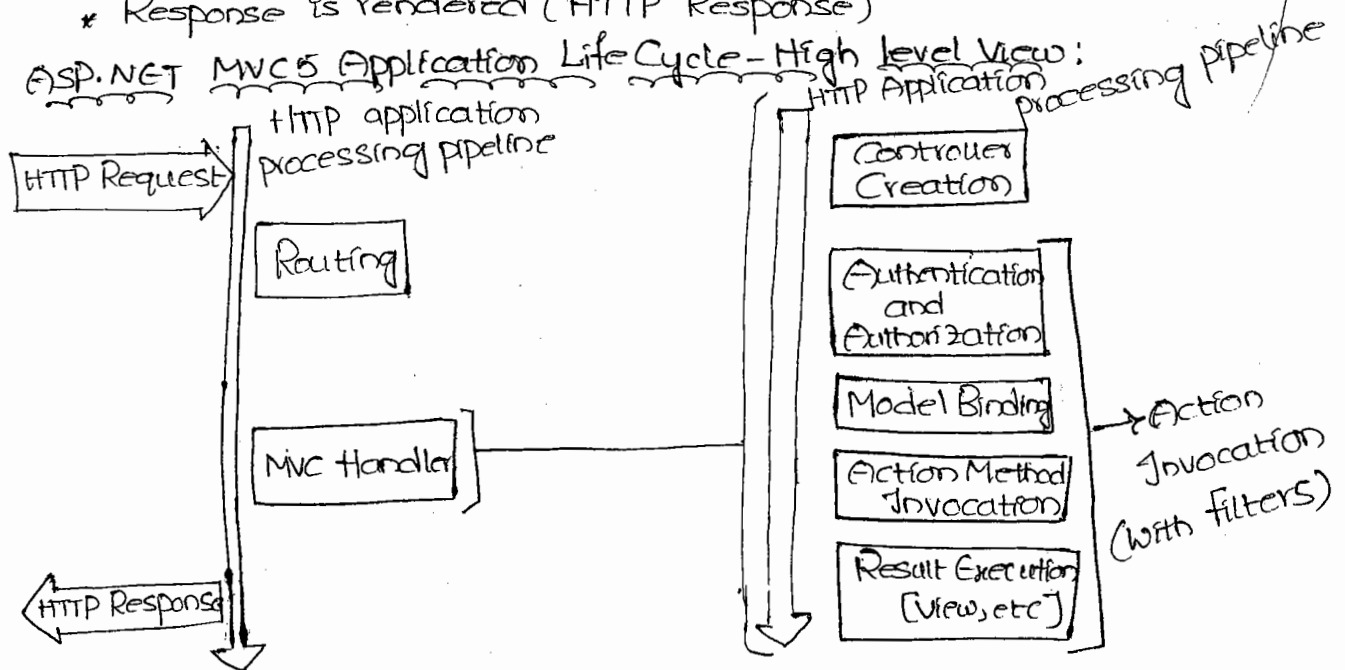 * Response is rendered (HTTP Response)
ASP.NET MVC5 Application Life Cycle - High level View:
HTTP application
processing pipeline
HTTP Request
Routing
MVC Handler
HTTP Response
HTTP Application
processing pipeline
Controller
Creation
Authentication
and
Authorization
Model Binding
Action Method
Invocation
Result Execution
[View, etc]
Action
Invocation
(with filters)